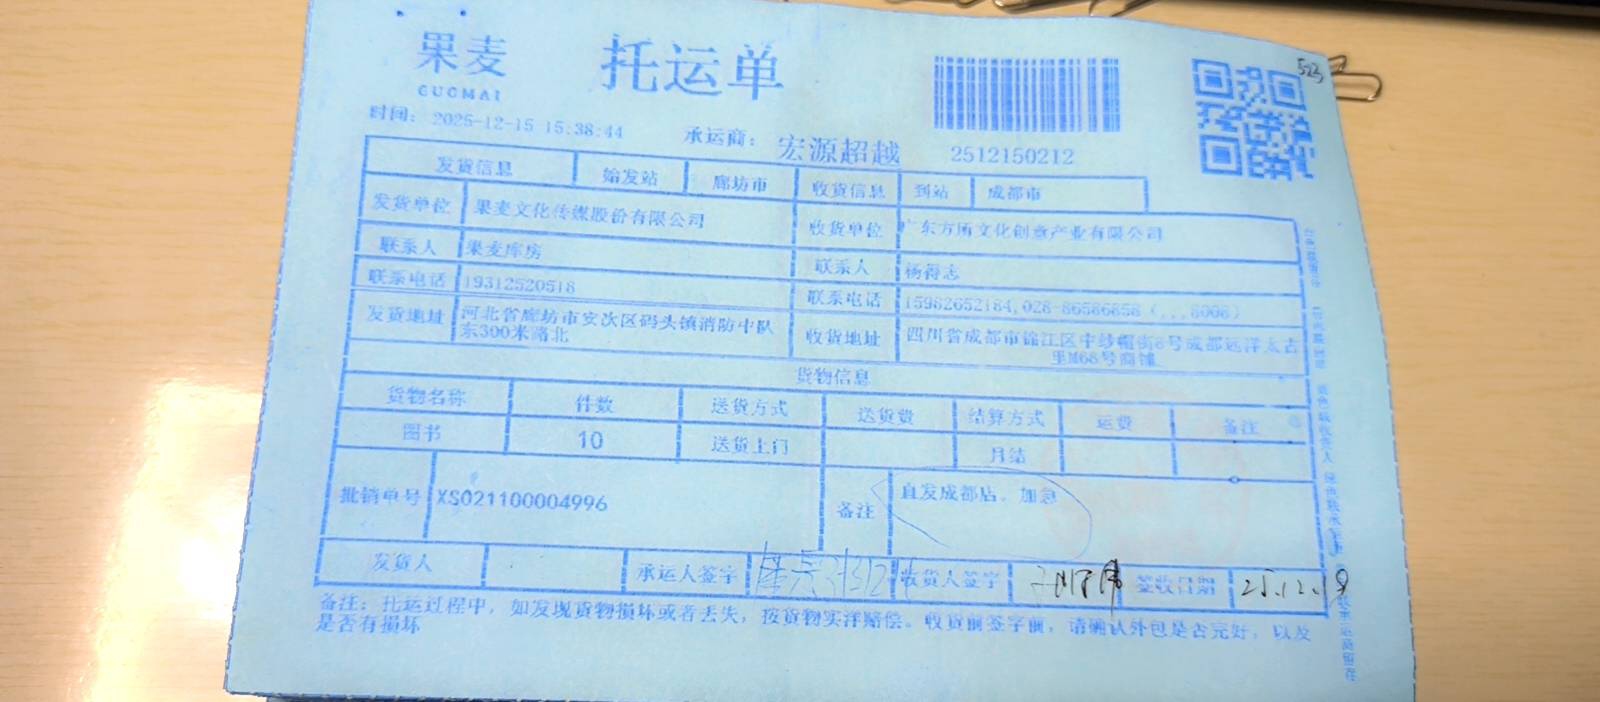 523
果麦 托运单
GUOMAI
时间： 2025-12-15 15:38:44 承运商： 宏源超越 2512150212
发货信息 始发站 廊坊市 收货信息 到站 成都市
发货单位 果麦文化传媒股份有限公司 收货单位 广东方所文化创意产业有限公司
联系人 果麦库房 联系人 杨得志
联系电话 19312520518 联系电话 15982652184,028-86586858 (,,,8008)
发货地址 河北省廊坊市安次区码头镇消防中队东300米路北 收货地址 四川省成都市锦江区中纱帽街8号成都远洋太古里M68号商铺
货物信息
货物名称 件数 送货方式 送货费 结算方式 运费 备注
图书 10 送货上门 月结
批销单号 XS021100004996 备注 直发成都店。加急
发货人 承运人签字 收货人签字 签收日期 25.12.19
备注：托运过程中，如发现货物损坏或者丢失，按货物实洋赔偿。收货前签字前，请确认外包是否完好，以及
是否有损坏